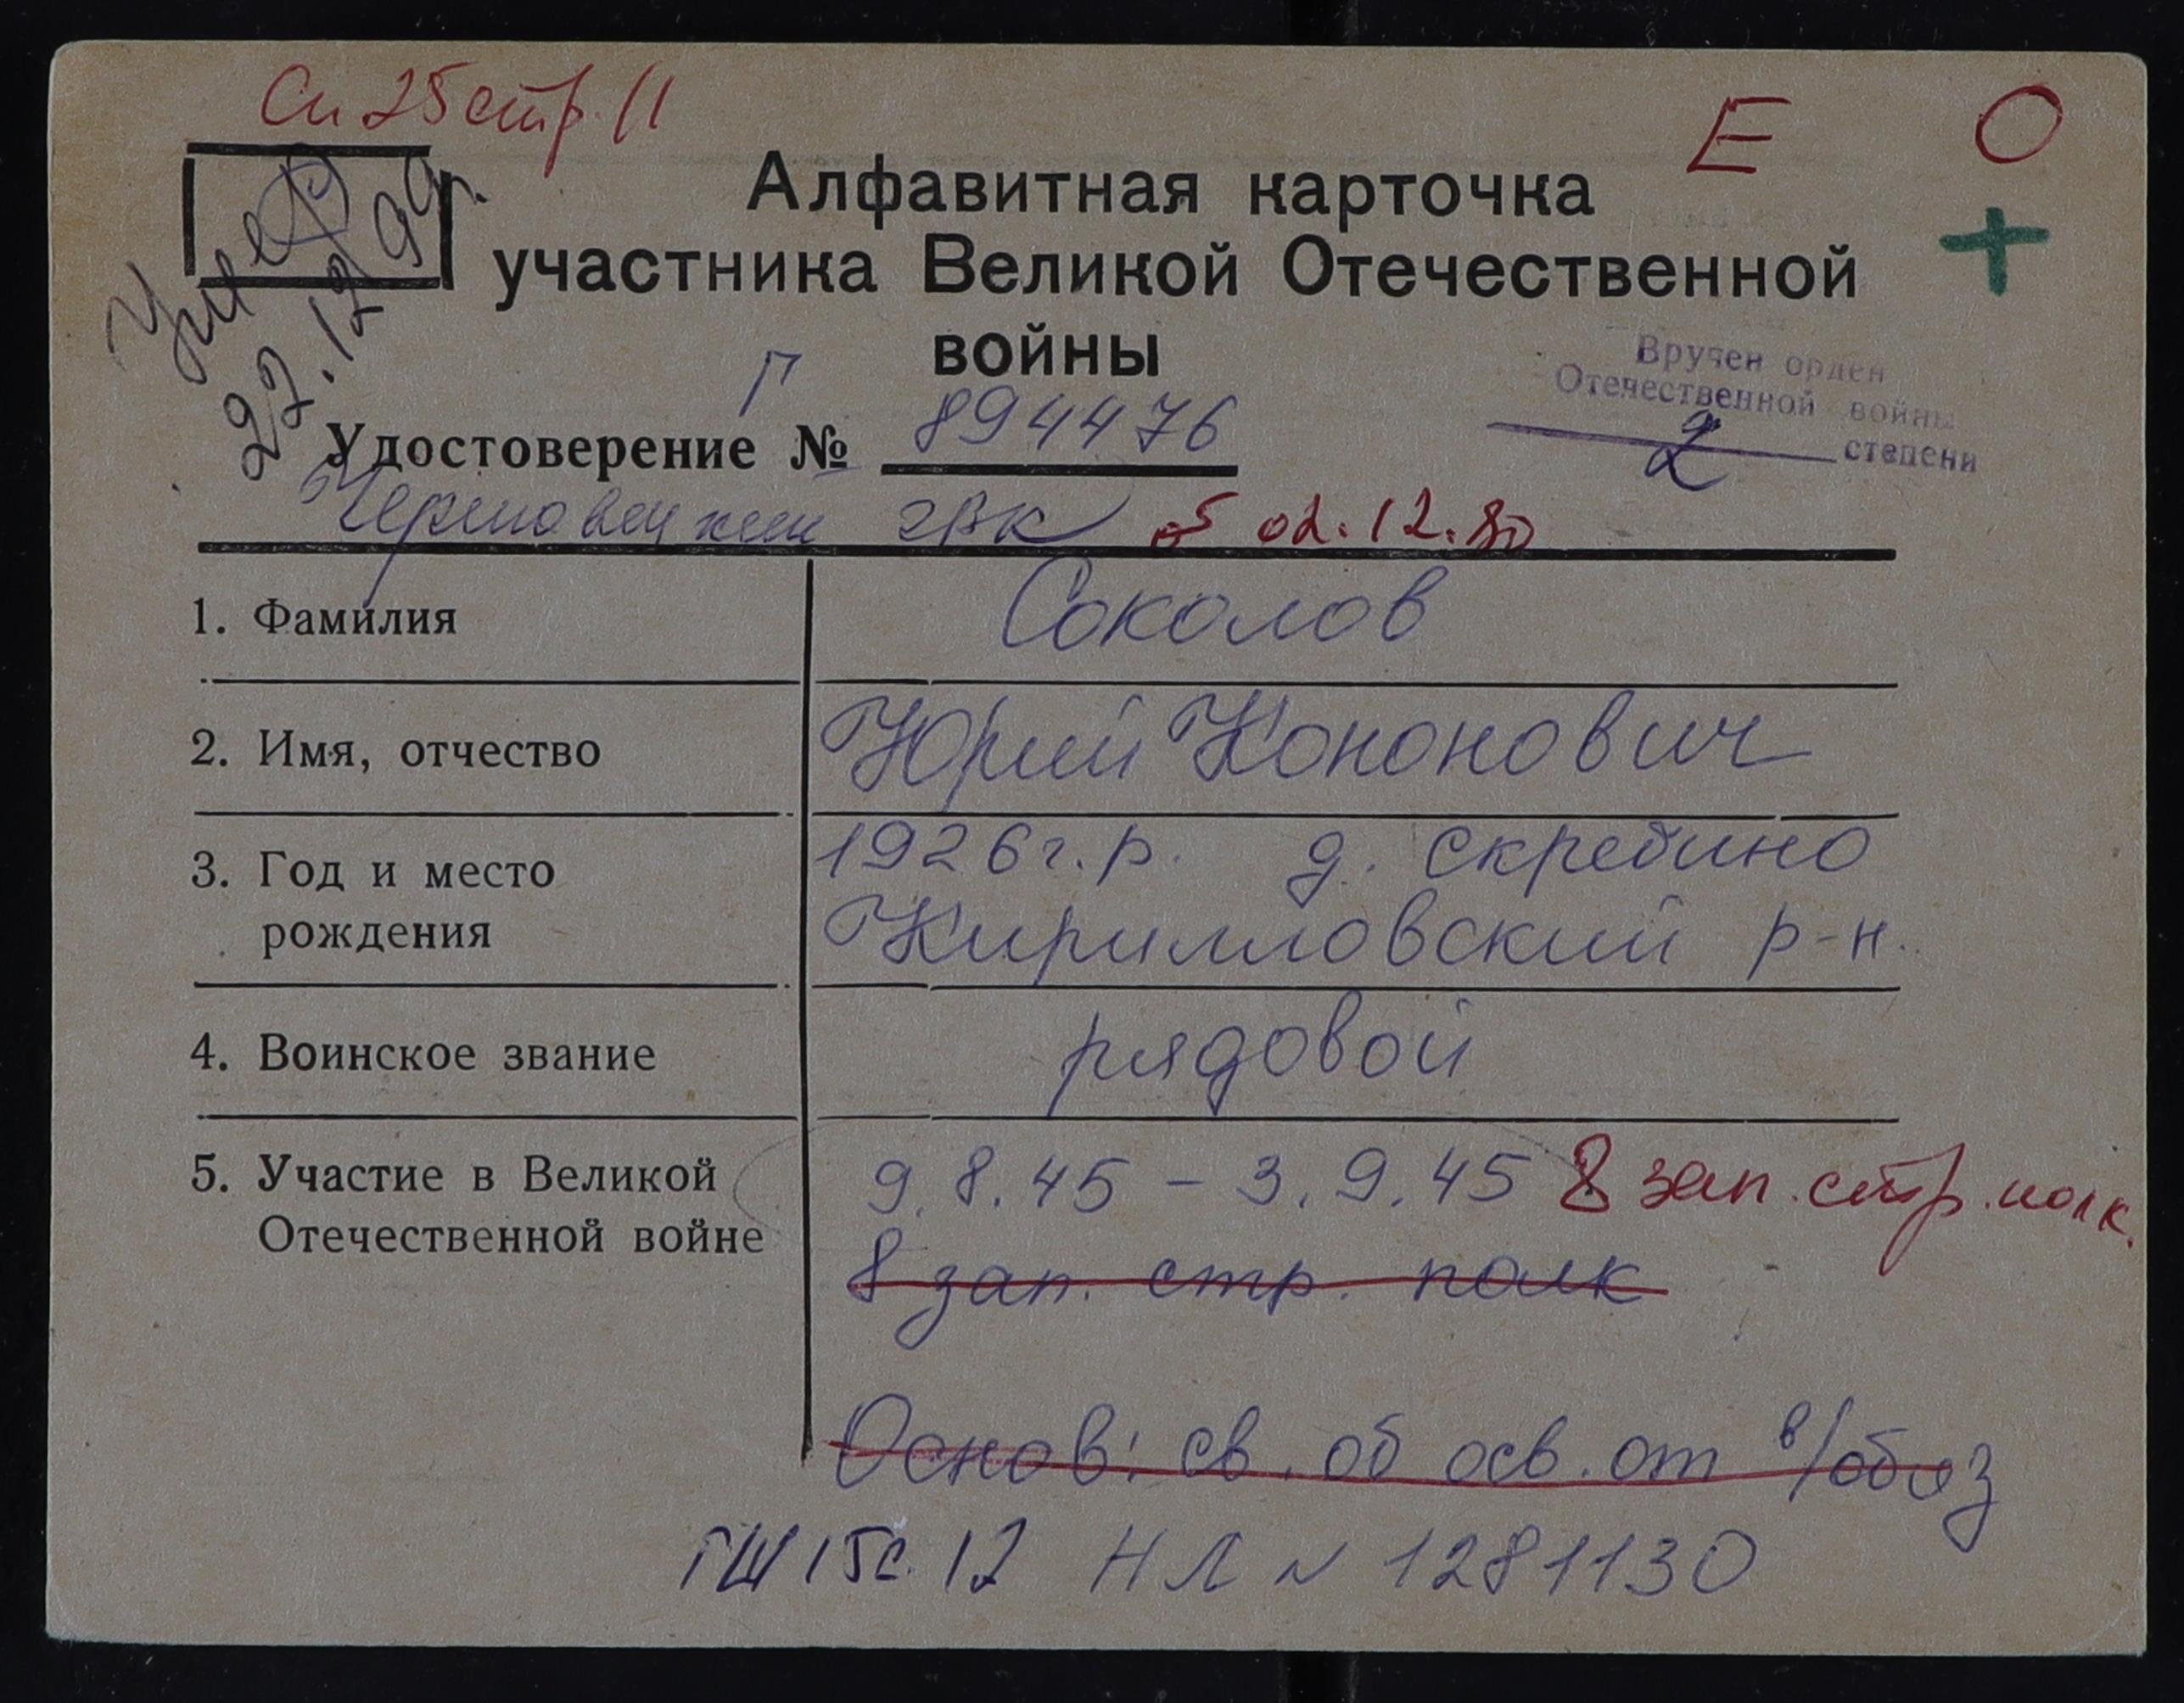 Сп 25 стр. 11
Е О
Умер
22.12.99г.
Алфавитная карточка
участника Великой Отечественной
войны
Вручен орден
Отечественной войны
2 степени
Г
Удостоверение № 894476
Череповецкий гвк от 02.12.80
1. Фамилия Соколов
2. Имя, отчество Юрий Кононович
3. Год и место рождения 1926 г.р. д. Скребино
Кирилловский р-н.
4. Воинское звание рядовой
5. Участие в Великой Отечественной войне 9.8.45 - 3.9.45 8 зап. стр. полк.
8 зап. стр. полк
Основ: св. об осв. от в/обяз
НЛ № 1281130